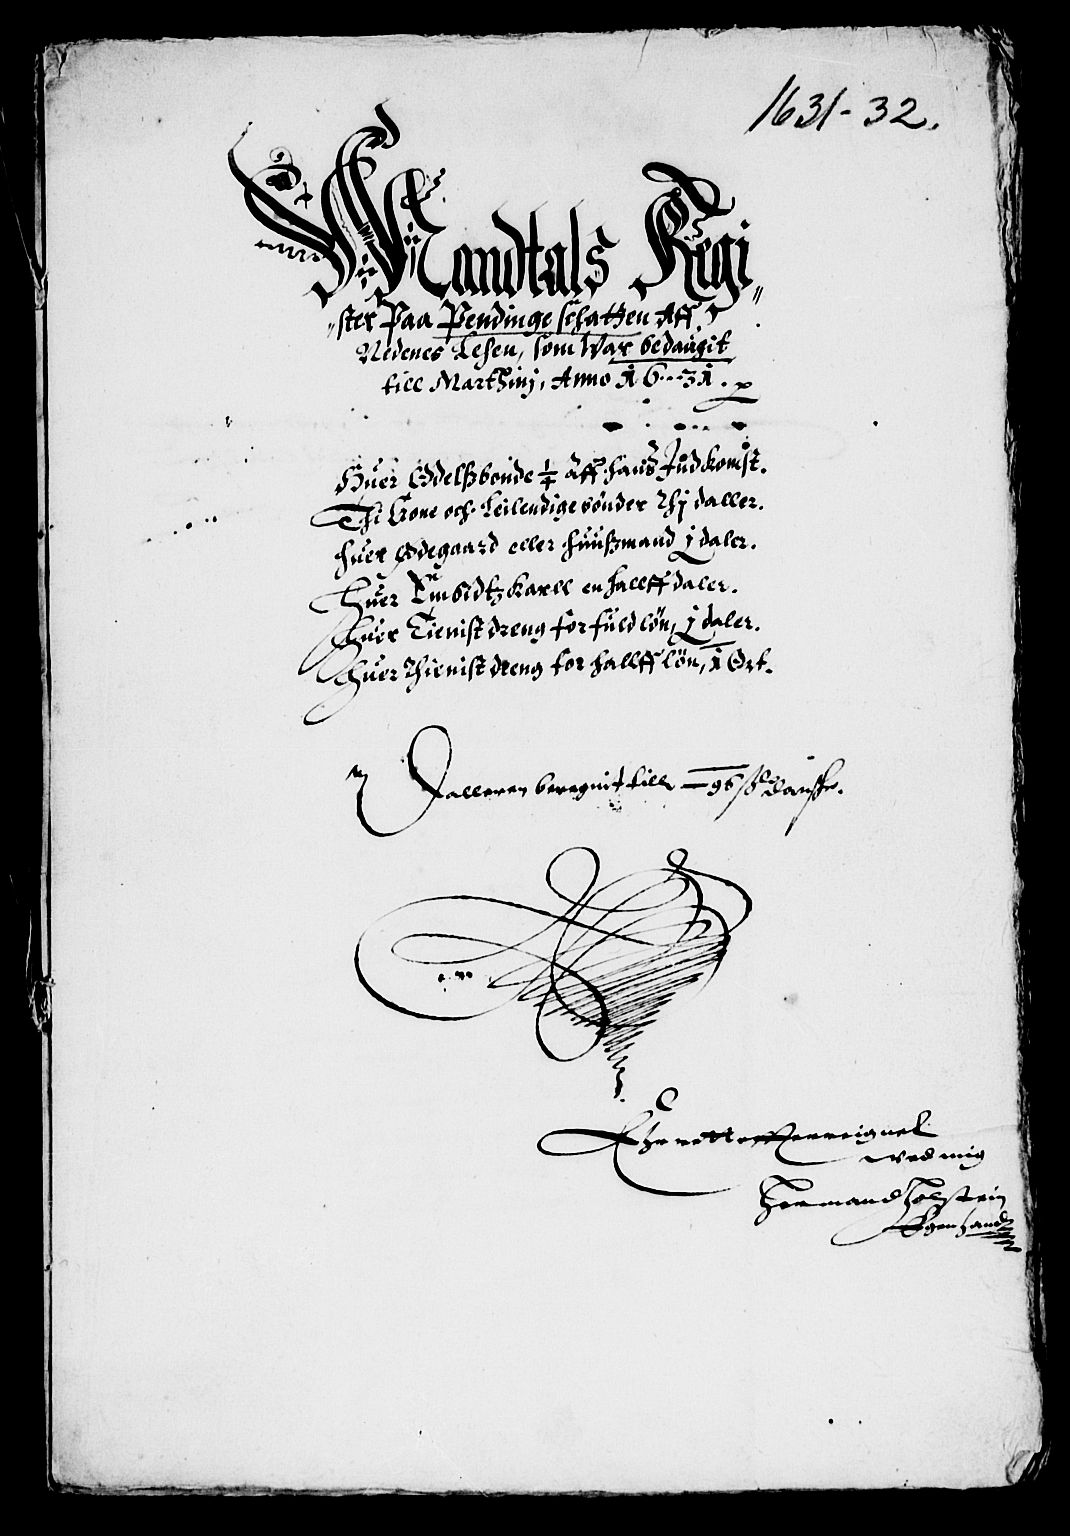 1631-32.
Mandtals Regi„
„ster Paa Pendinge schatten Aff
Nedenes Lehen, som War bedaugit
till Marthinj, Anno 1631.
Huer Odelsbonde 1/4 aff hans Indkomst.
Thi Crone och Leilendigebönder Thj daller.
huer Ödegaard eller huusmand j daler.
Huer Embidtzkarll en hallff daler.
Huer Tienist dreng for fuld lön, j daler.
Huer Thienist dreng for hallff lön, 1 Ort.
Dalleren beregnit till 96 ß danske.
Effterreignet
wed mig
Hermand Holstein
Egen hand